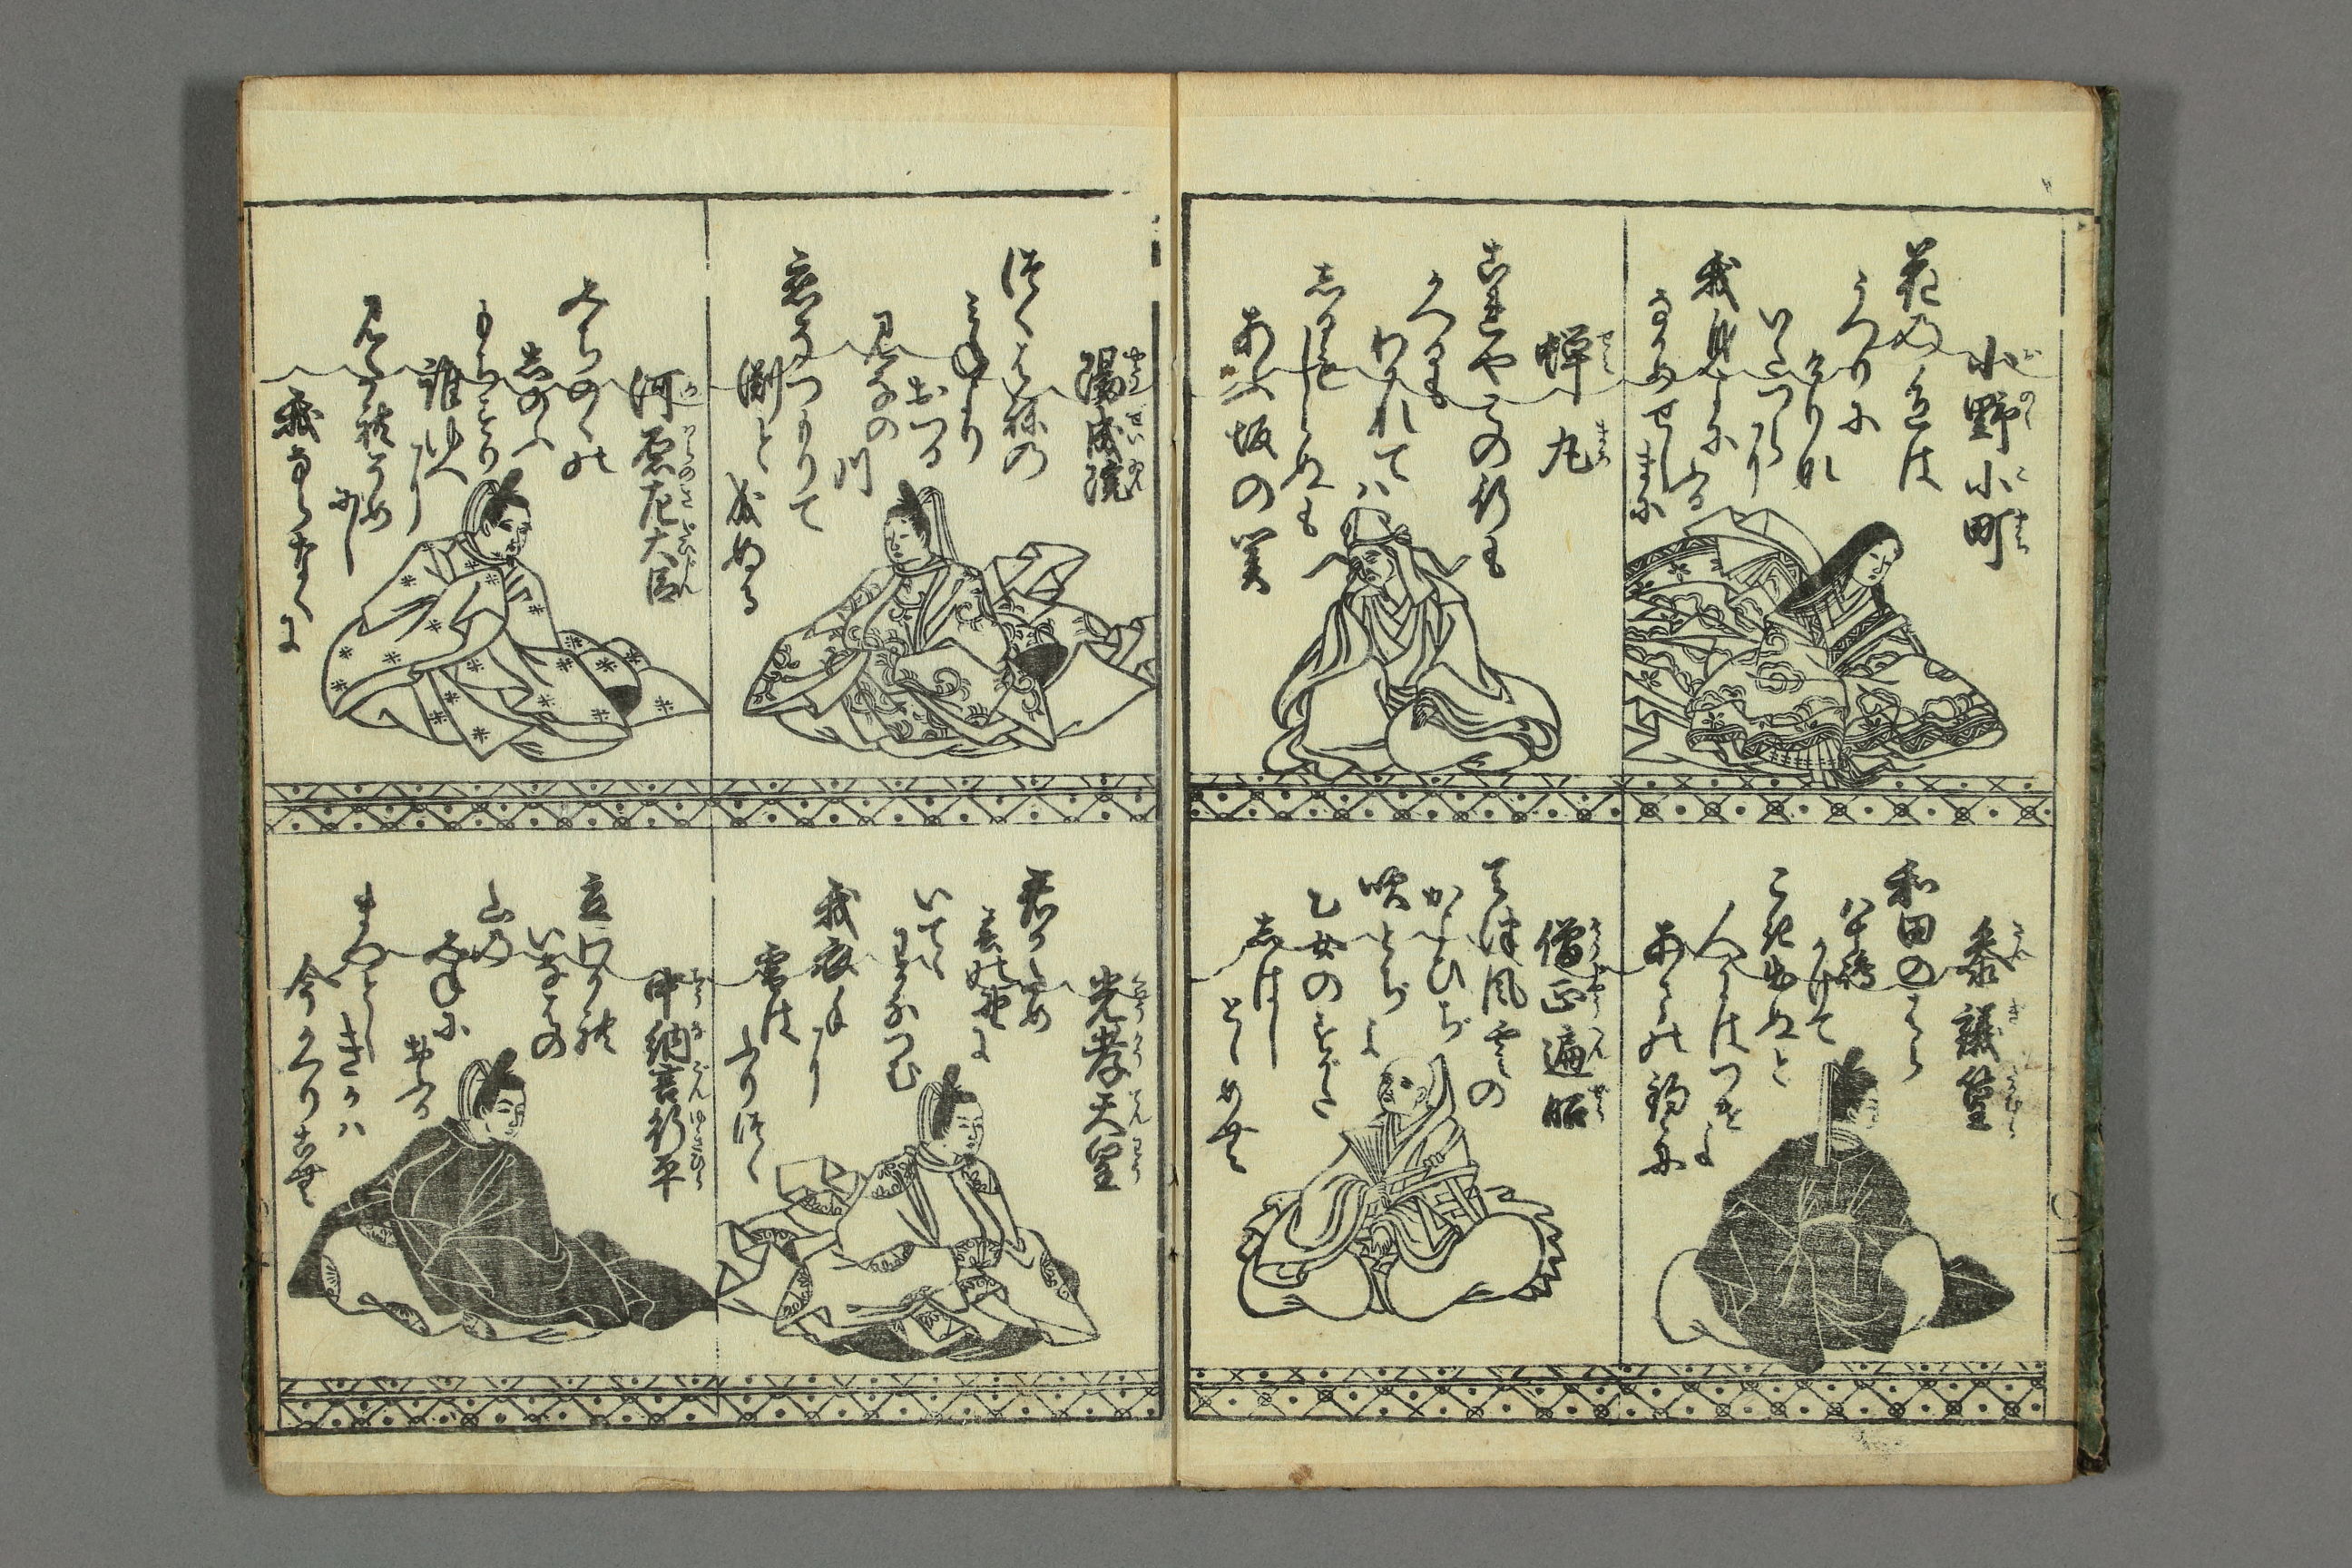 小野小町
花の色は
うつりに
けりな
いたつらに
我身よにふる
なかめせしまに
蝉丸
これやこの行も
かへるも
わかれてハ
しるもしらぬも
あふ坂の関
参議篁
和田のはら
八十嶋
かけて
こき出ぬと
人にはつけよ
あまの釣舟
僧正遍昭
天津風雲の
かよひぢ
吹とぢよ
乙女のすがた
しはし
とゝめむ
陽成院
つくはねの
みねより
おつる
みなの川
恋そつもりて
淵と成ぬる
河原左大臣
みちのくの
しのふ
もちすり
誰ゆへに
みたれそめ
にし
我ならなくに
光孝天皇
君かため
春の野に
いてゝ
わかなつむ
我衣手に
雪はふりつゝ
中納言行平
立わかれ
いなはの
山の
みねに
おふる
まつとし
きかハ
今かへりこむ